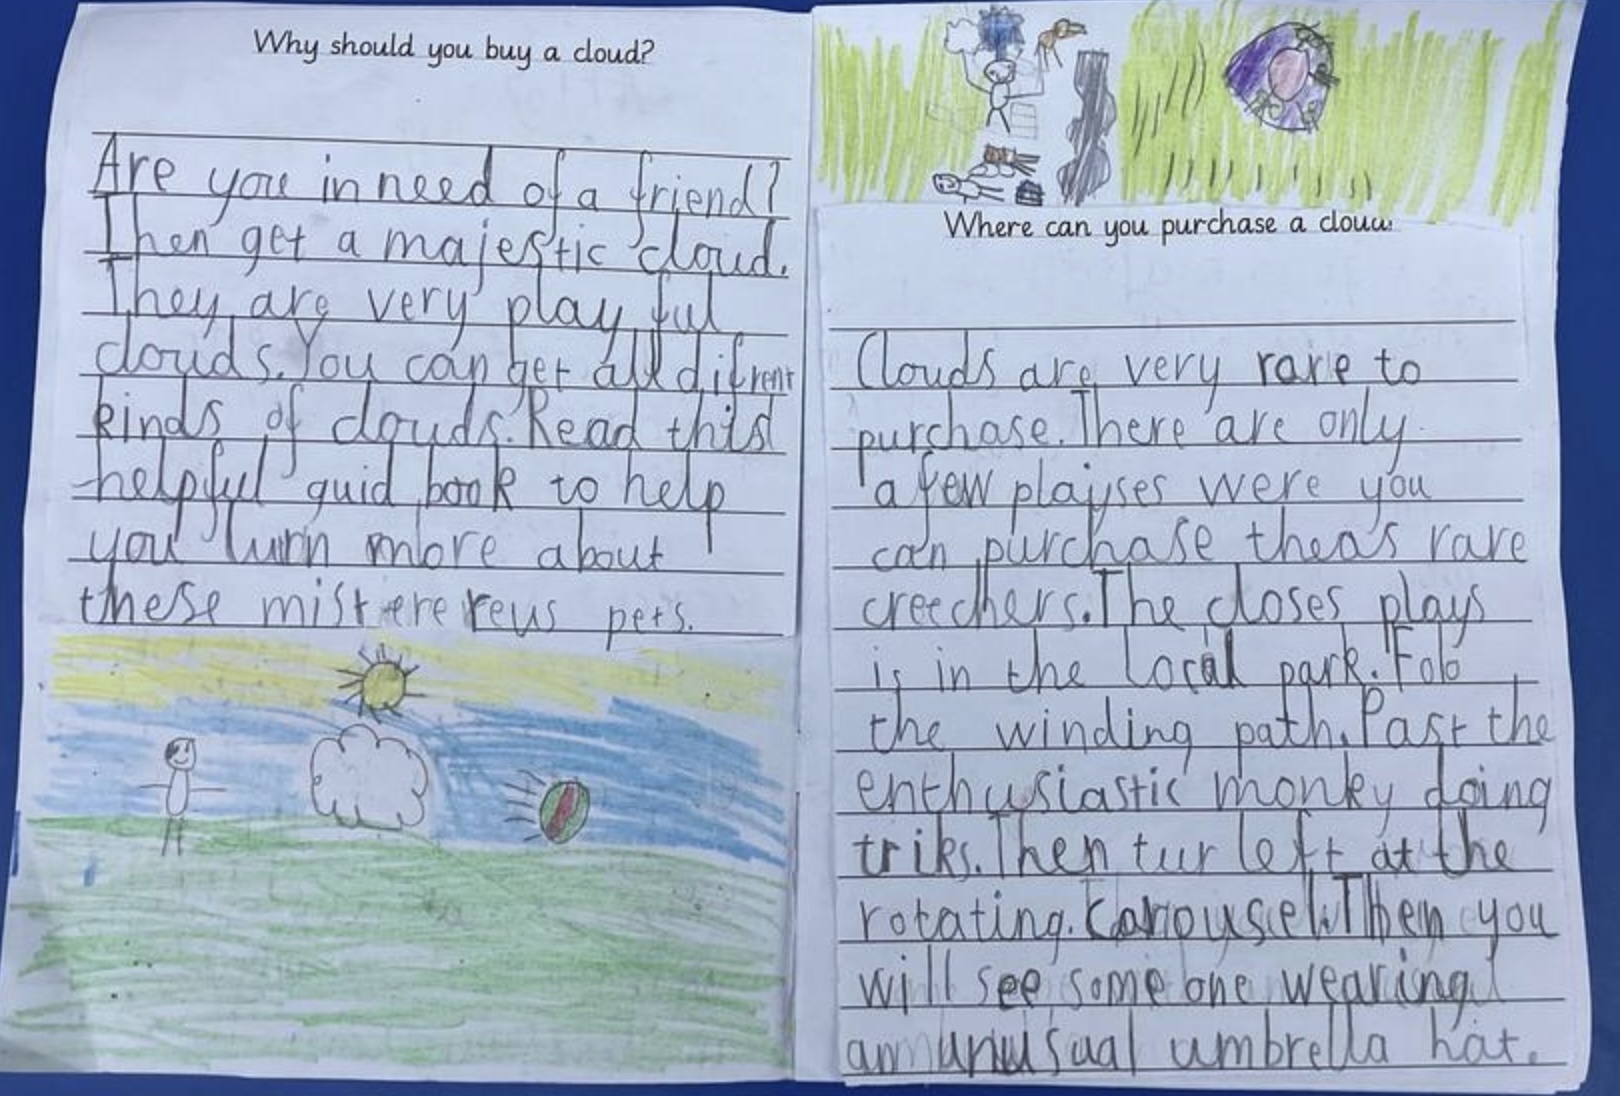 Why should you buy a cloud?
Are you in need of a friend?
Then get a majestic cloud.
They are very play ful
clouds. You can get all difrent
kinds of clouds. Read this
helpful guid book to help
you lurn more about
these mistererous pets.
Where can you purchase a cloud?
Clouds are very rare to
purchase. There are only
a few playses were you
can purchase theas rare
creechers. The closes plays
is in the local park. Folo
the winding path. Past the
enthusiastic monky doing
triks. Then tur left at the
rotating. Carousel. Then you
will see some one wearing
an unusual umbrella hat.